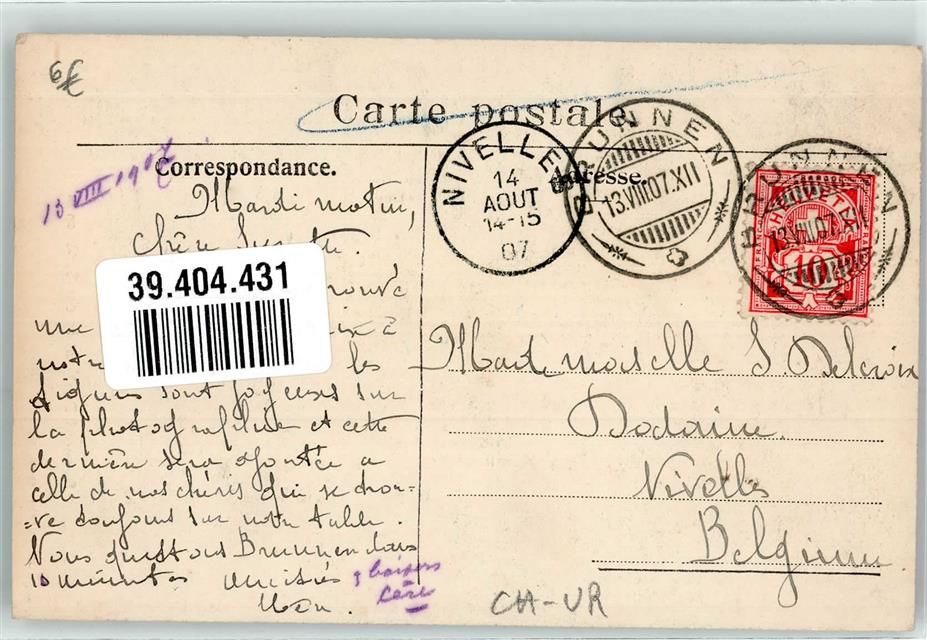 Carte postale.
13 VIII 1907
Correspondance.
Adresse.
NIVELLES
14
AOUT
14-15
07
BRUNNEN
13.VIII.07.XII
BRUNNEN
13.VIII.07
HELVETIA
10
Mardi matin,
Chère
39.404.431
rouvé
une à
notre les
figures sont joyeuses sur
la photografie et cette
dernière sera ajoutée a
celle de nos chéris qui se trou-
=ve toujours sur notre table.
Nous quittons Brunnen dans
10 minutes amitiés
3 baisers
Mademoiselle S Delcroix
Dodaine
Nivelles
Belgique
CH-UR